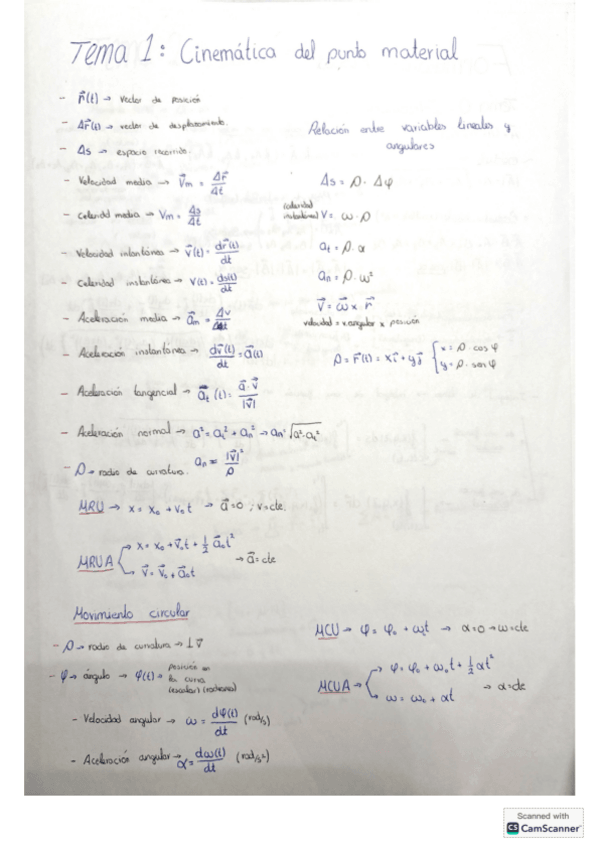 Tema 1: Cinemática del punto material
- r⃗(t) → vector de posición
- Δr⃗(t) → vector de desplazamiento.
- Δs → espacio recorrido.
- Velocidad media → V⃗m = Δr⃗/Δt
- Celeridad media → Vm = Δs/Δt
- Velocidad intantánea → v⃗(t) = dr⃗(t)/dt
- Celeridad instantánea → v(t) = ds(t)/dt
- Aceleración media → a⃗m = Δv/Δt
- Aceleración instantánea → dv⃗(t)/dt = a⃗(t)
- Aceleración tangencial → a⃗t (t) = a⃗ · v⃗/|v⃗|
- Aceleración normal → a² = at² + an² → an = √a² - at²
an = |v⃗|²/ρ
- ρ → radio de curvatura.
Relación entre variables lineales y
angulares
Δs = ρ · Δφ
(celeridad
instantánea) V = ω · ρ
at = ρ · α
an = ρ · ω²
V⃗ = ω⃗ x r⃗
velocidad = v.angular x posición
ρ = r⃗(t) = xi⃗ + yj⃗ { x = ρ · cos φ
y = ρ · sen φ
MRU → x = x₀ + v₀t → a⃗ = 0 ; v = cte.
MRUA → x = x₀ + v⃗₀t + 1/2 a⃗₀t²
→ v⃗ = v⃗₀ + a⃗₀t → a⃗ = cte
Movimiento circular
- ρ → radio de curvatura → ⊥ v⃗
- φ → ángulo → φ(t) → posición en la curva (escalar) (radianes)
- Velocidad angular → ω = dφ(t)/dt (rad/s)
- Aceleración angular → α = dω(t)/dt (rad/s²)
MCU → φ = φ₀ + ωt → α = 0 → ω = cte
MCUA → φ = φ₀ + ω₀t + 1/2 αt²
→ ω = ω₀ + αt → α = cte
Scanned with
CS CamScanner